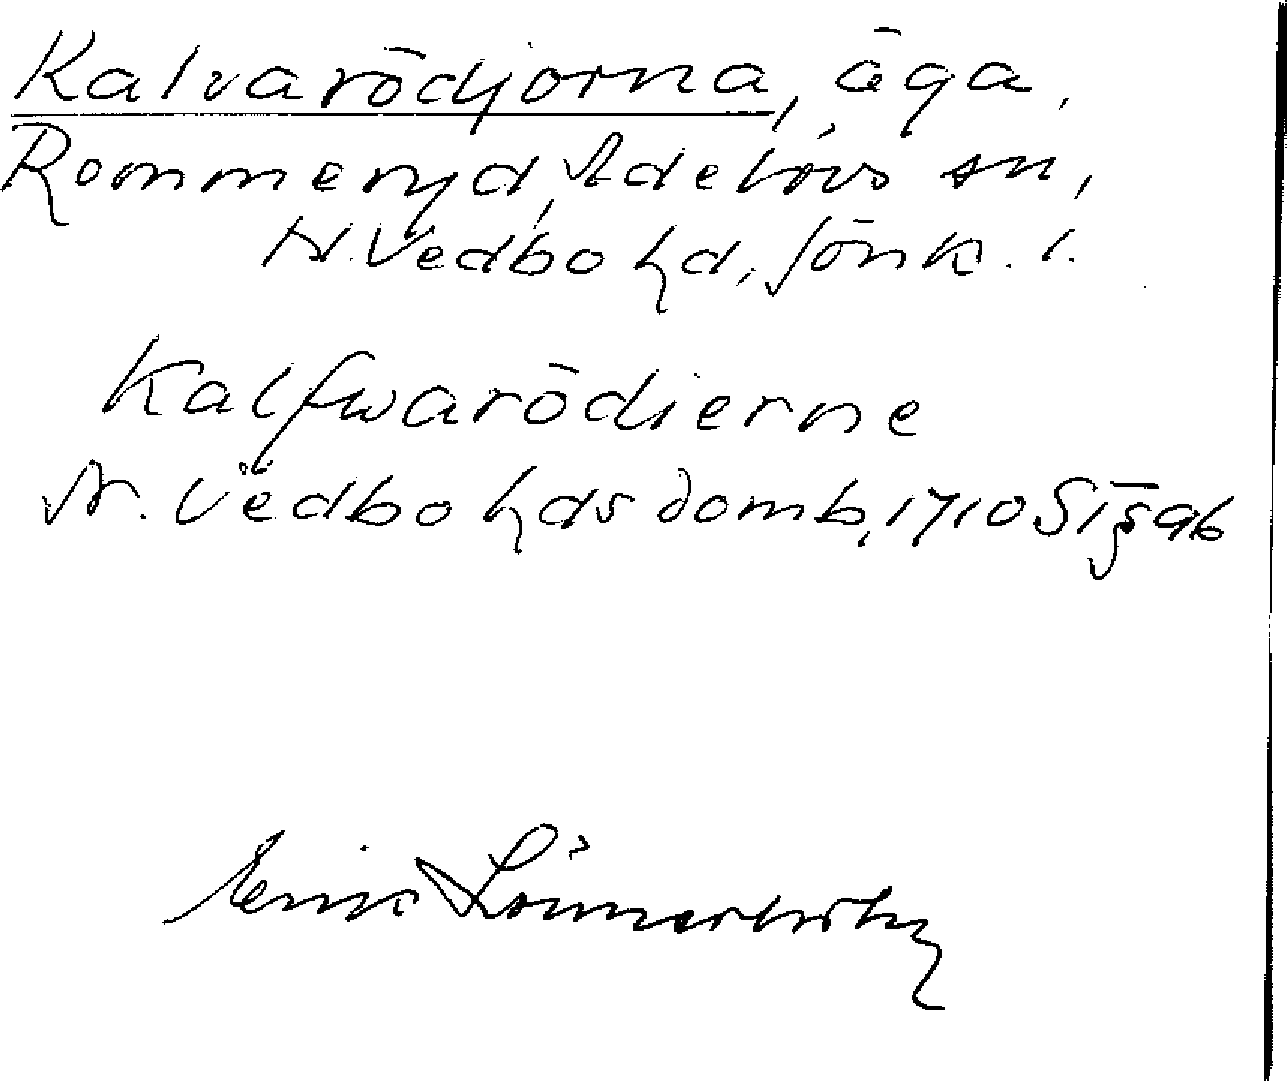 Kalvarödjorna, äga,
Rommeryd, Adelövs sn,
N. Vedbo hd, Jönk. l.
Kalfwarödierne
N. Vedbo hds domb, 1710 St § 96
Erik